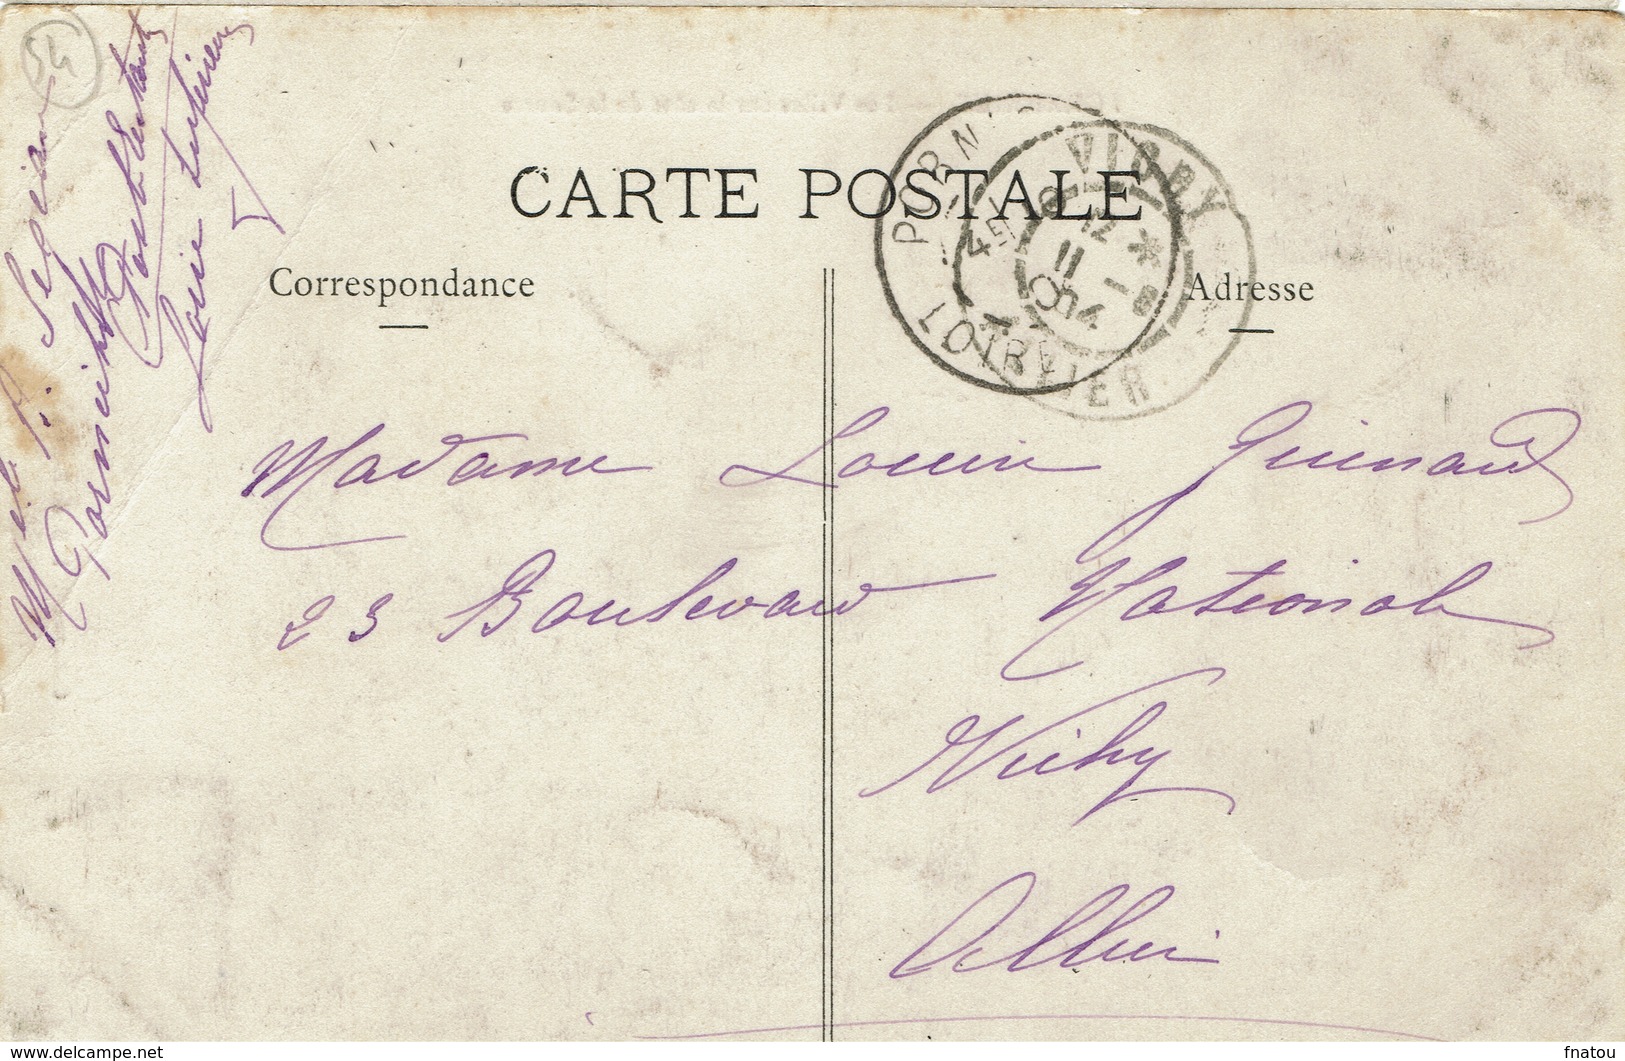 54
CARTE POSTALE
Correspondance
Adresse
PORNIC
LOIRE
VICHY
ALLIER
12
11
04
Loire Inférieure
Madame Louise Guinard
23 Boulevard National
Vichy
Allier
https://www.delcampe.net
fnatou